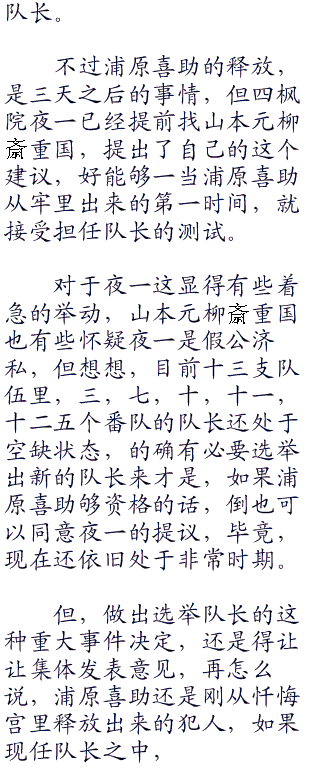 队长。
不过浦原喜助的释放，
是三天之后的事情，但四枫
院夜一已经提前找山本元柳
斎重国，提出了自己的这个
建议，好能够一当浦原喜助
从牢里出来的第一时间，就
接受担任队长的测试。
对于夜一这显得有些着
急的举动，山本元柳斎重国
也有些怀疑夜一是假公济
私，但想想，目前十三支队
伍里，三，七，十，十一，
十二五个番队的队长还处于
空缺状态，的确有必要选举
出新的队长来才是，如果浦
原喜助够资格的话，倒也可
以同意夜一的提议，毕竟，
现在还依旧处于非常时期。
但，做出选举队长的这
种重大事件决定，还是得让
让集体发表意见，再怎么
说，浦原喜助还是刚从忏悔
宫里释放出来的犯人，如果
现任队长之中，